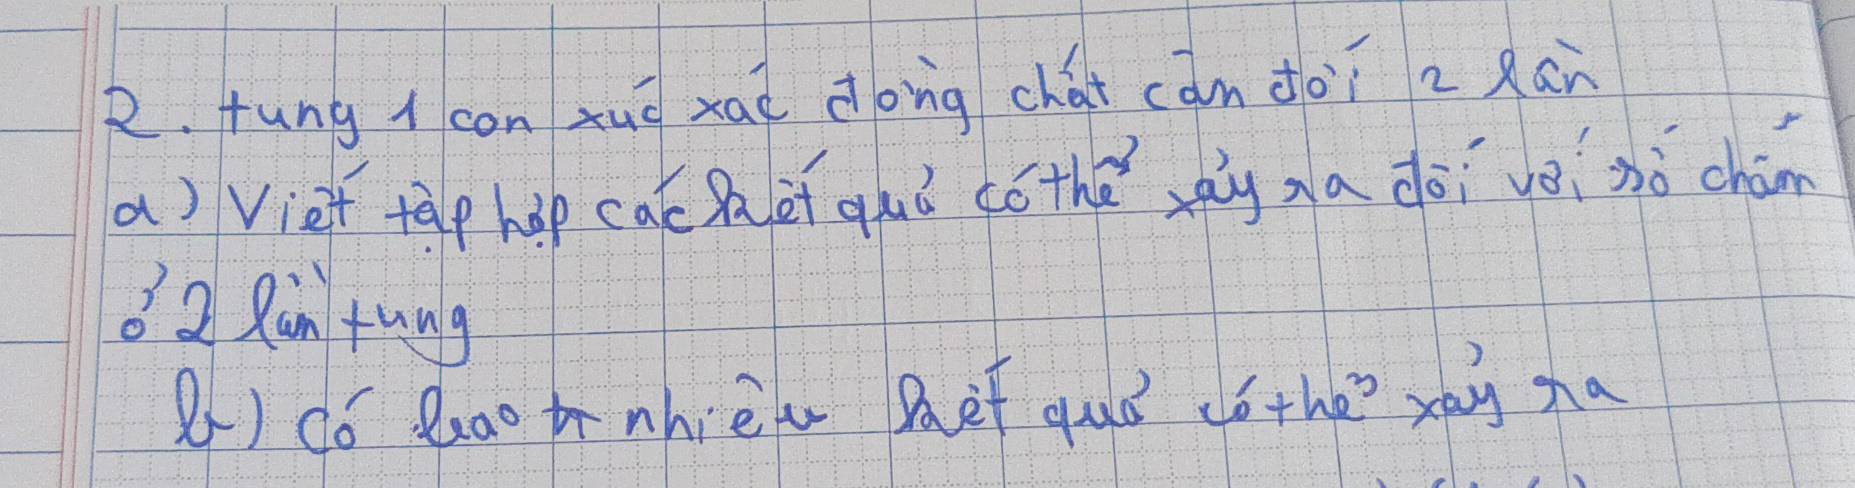 2. tung 1 con xúc xắc đồng chất cân đối 2 lần
a) Viết tập hợp các kết quả có thể xảy ra đối với số chấm
ở 2 lần tung
b) có bao nhiêu kết quả có thể xảy ra